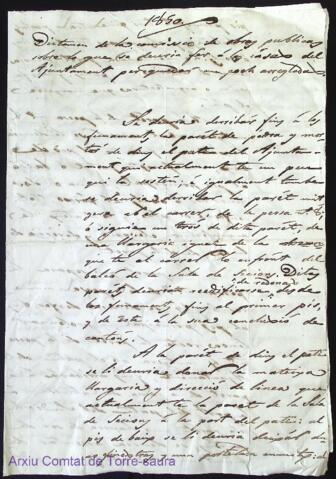 1860
Dictamen de la comisió de obras publicas
sobre lo que se deuria fer en la casa del
Ajuntament, per quedar un poch arreglada
Se deuria derribar fins á los
fonaments, la paret de pedra y mor-
té de dins el patio del Ajuntament
que actualment te un puntal
que la y igualment tambe
se deuria derribar la paret mit
ó siguien un tros de dita paret, de
una llargaria igual de la
que te el carrer enfront del
balcó de la Sala de Sesions. Ditas
parets deurian reedificarse de redonas desde
los fonaments, fins el primer pis,
y de este á la sua conclusió de
cantons.
A la paret de dins el patio
se li deuria donar la mateixa
llargaria y direcció de linea que
actualment te la paret de la Sala
de Sesions á la part del patio: el
pis de baix se li deuria deixar dos
finestras y una portalera
Arxiu Comtat de Torre-saura